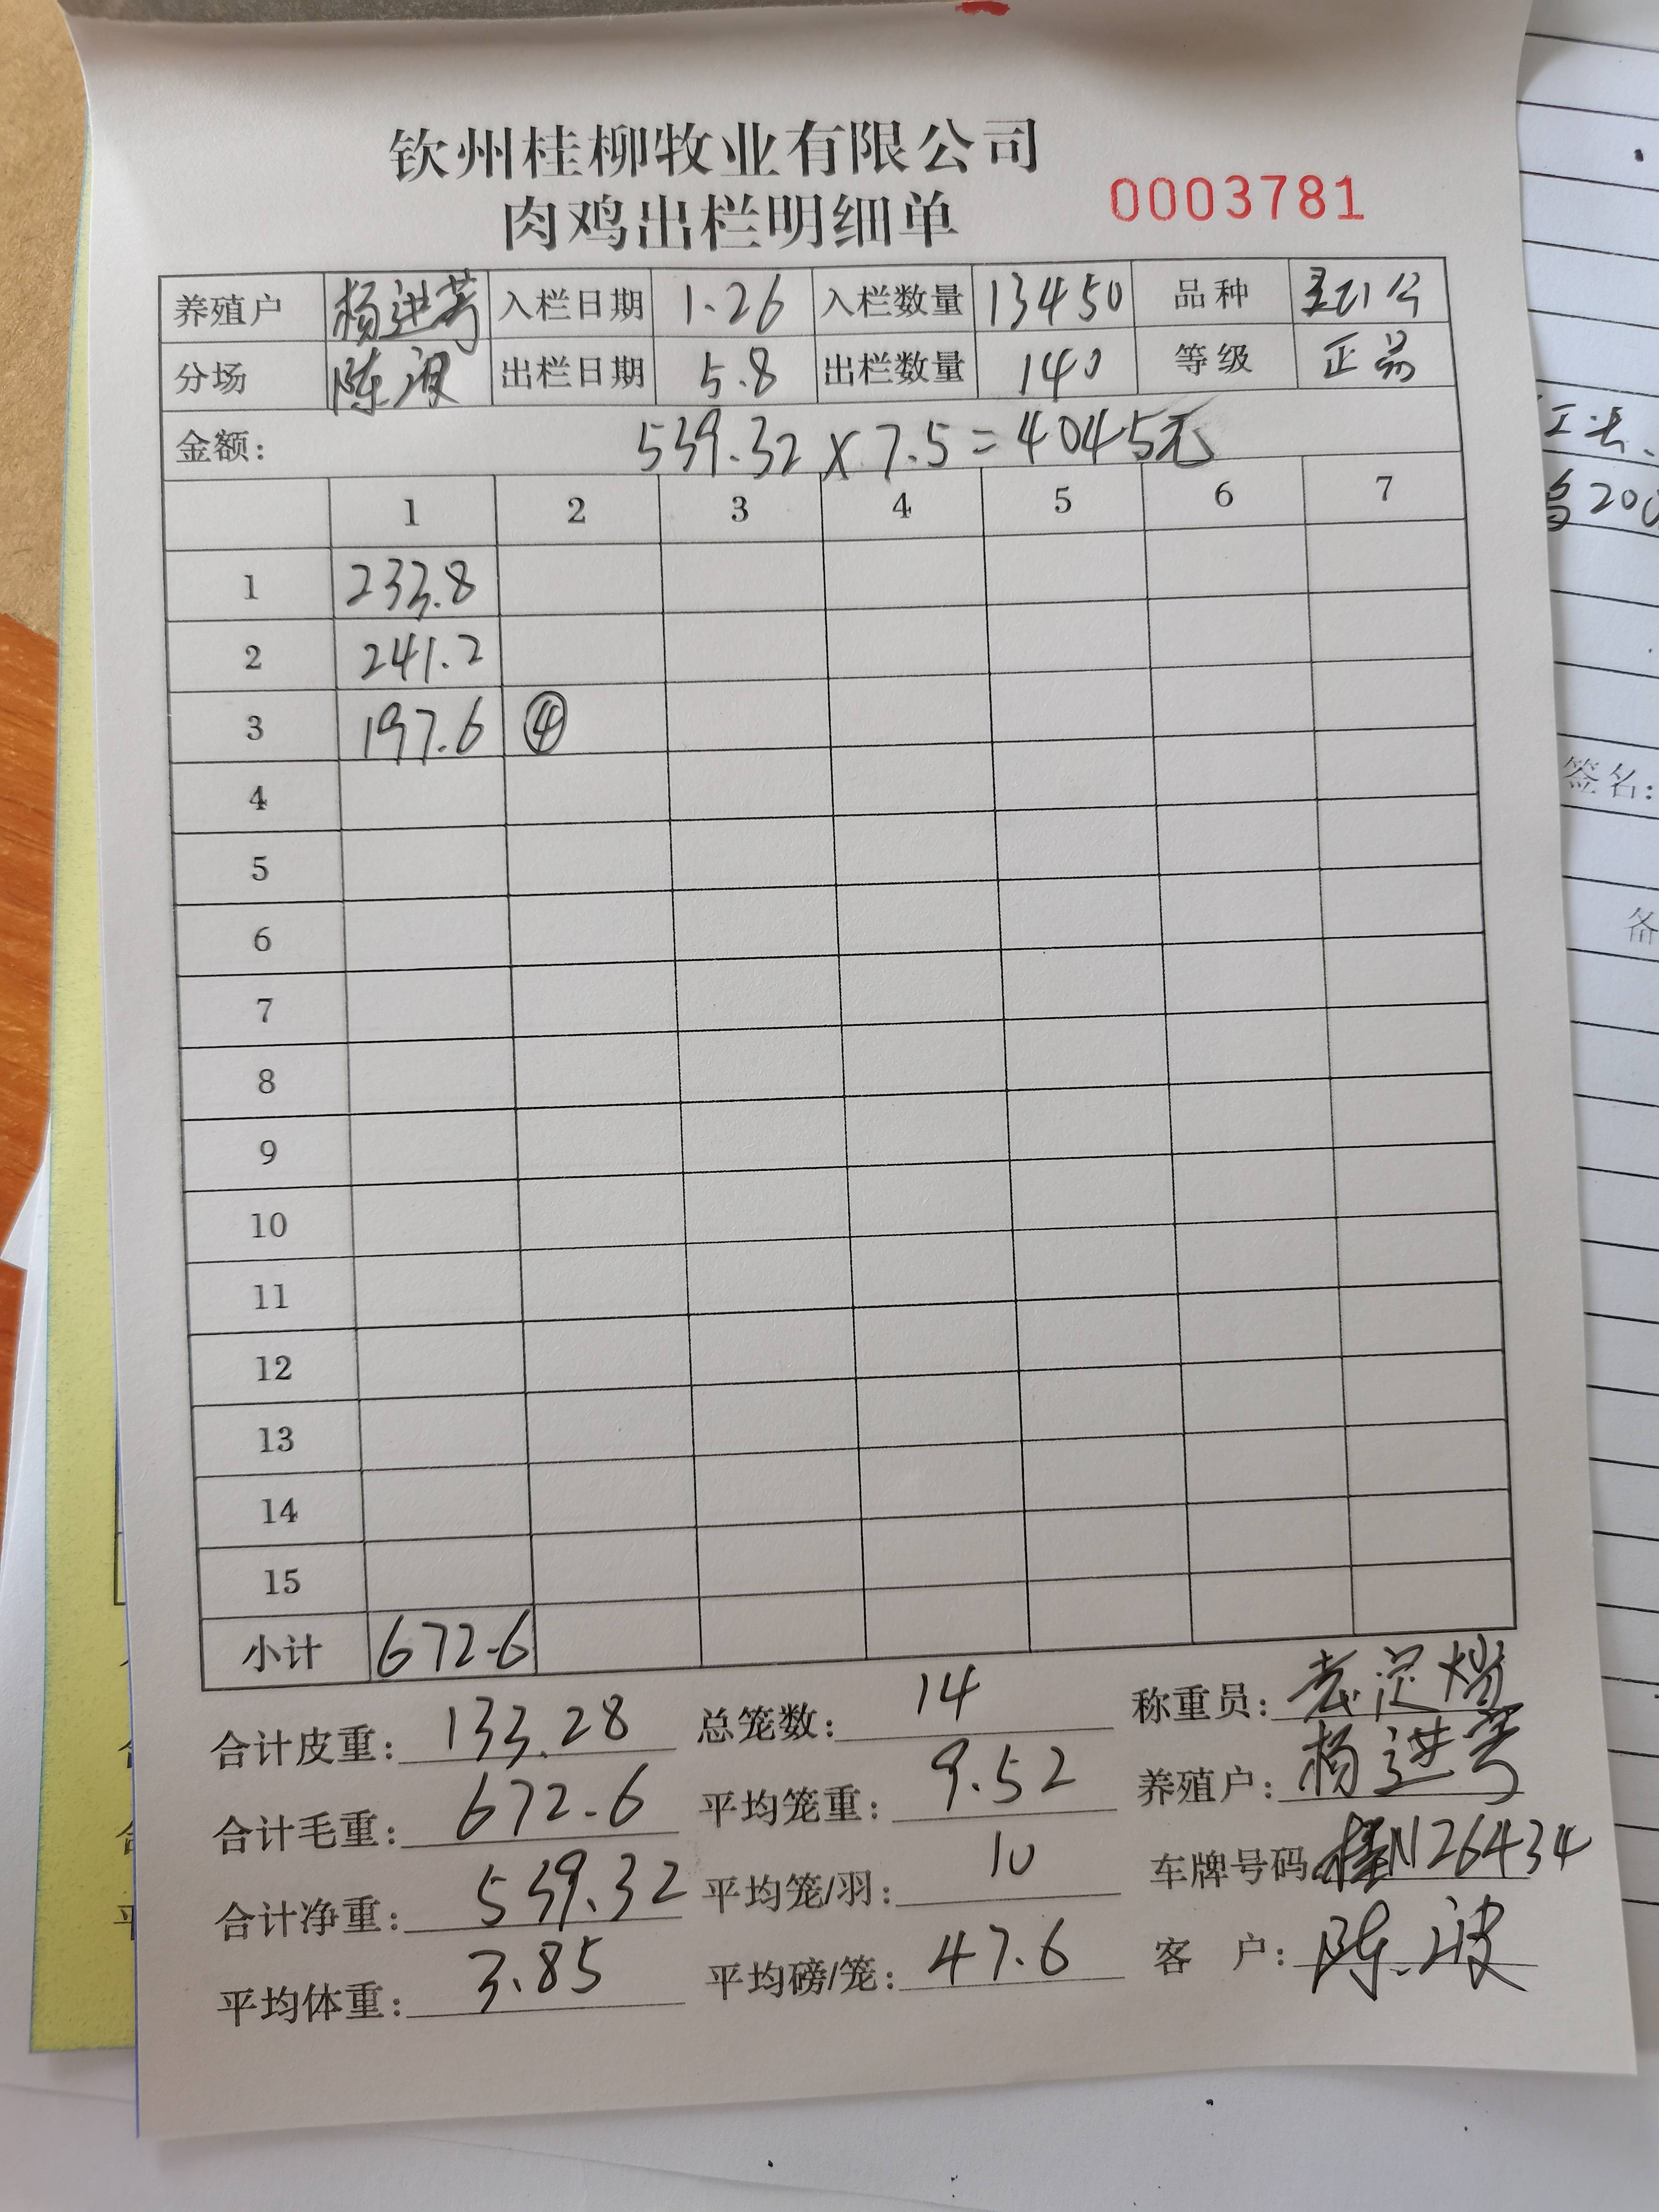 钦州桂柳牧业有限公司
肉鸡出栏明细单 0003781
养殖户 杨进芳 入栏日期 1.26 入栏数量 13450 品种
分场 陈波 出栏日期 5.8 出栏数量 140 等级 正品
金额: 539.32 x 7.5 = 4045元
1 2 3 4 5 6 7
1 233.8
2 241.2
3 197.6 ④
4
5
6
7
8
9
10
11
12
13
14
15
小计 672.6
合计皮重: 133.28 总笼数: 14 称重员:
合计毛重: 672.6 平均笼重: 9.52 养殖户: 杨进芳
合计净重: 539.32 平均笼/羽: 10 车牌号码 桂N26434
平均体重: 3.85 平均磅/笼: 47.6 客 户: 陈波
签名: